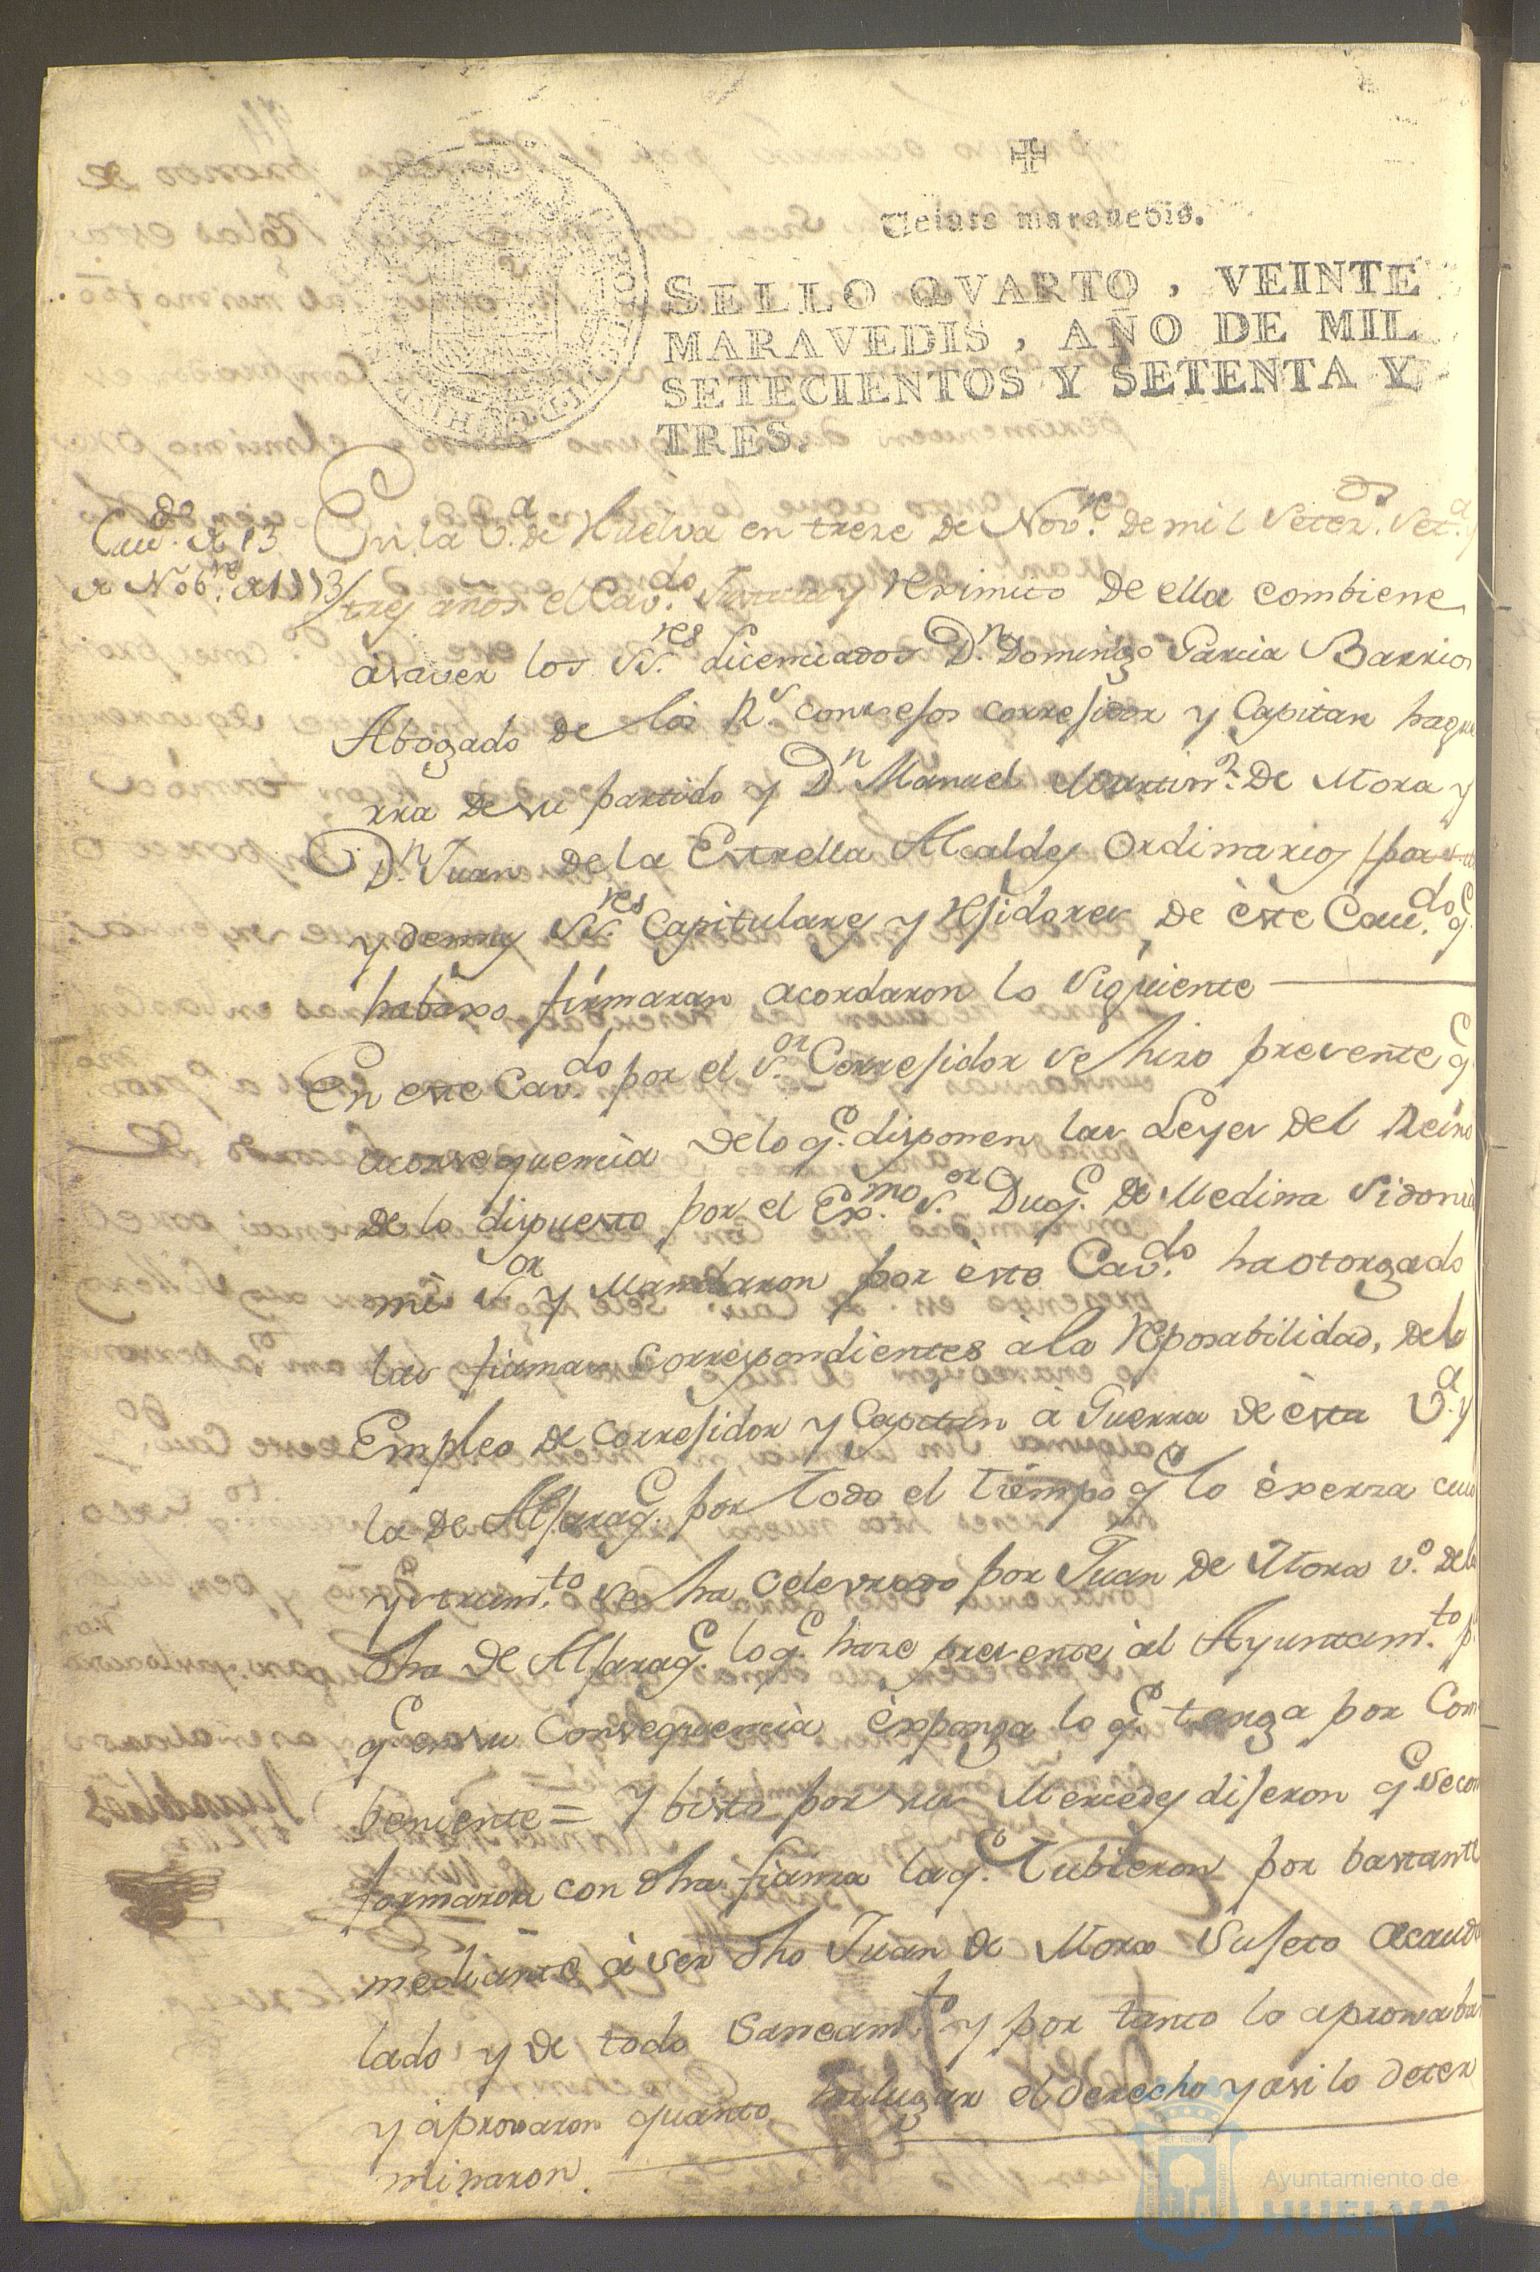 Veinte maravedis.
SELLO QVARTO, VEINTE
MARAVEDIS, AÑO DE MIL
SETECIENTOS Y SETENTA Y
TRES.
Cau.do de 13
de Nob.re de 1773
En la V.a de Huelva en trese de Nov.re de mil Setez.os Set.a y
tres años el Cav.do Justicia y Reximito De ella combiene
asaver los SS.res Licenciados D.n Domingo Garcia Barrios
Abogado de los R.s consesos correjidor y Capitan hague
rra de su partido y D.n Manuel Martin.z De Mora y
D.n Juan de la Estrella Alcaldes Ordinarios
y demas SS.res Capitulares y Rejidores De èste Cau.do q.e
habaxo firmaran acordaron lo siguiente
En este Cav.do por el S.or Correjidor se hizo presente q.e
aconsequencia de lo q.e disponen las Leyes del Reino
de lo dispuesto por el Ex.mo S.or Duq.e de Medina Sidonia
mi S.or y Mandaron por èste Cav.do ha otorgado
las fiansas Correspondientes à la Reposabilidad, del
Empleo de correjidor y Capitan à Guerra de èsta V.a y
la de Aljaraq.e por todo el tiempo q.e lo èxersa cuio
ystrum.to se ha celevrado por Juan de Mora v.o de la
dha de Aljaraq.e lo q.e haze presente àl Ayuntam.to p.a
q.e en su Consequencia èxponga lo q.e tenga por Com
beniente = Y bista por sus Mercedes dijeron q.e se con
formaron con dha fianza la q.e Tubieron por bastante
mediante à ser dho Juan de Mora Sujeto acauda
lado y de todo Saneam.to y por tanto lo aprovaban
y àprovaron quanto halugar el derecho y asi lo deter
minaron.
Ayuntamiento de
HUELVA